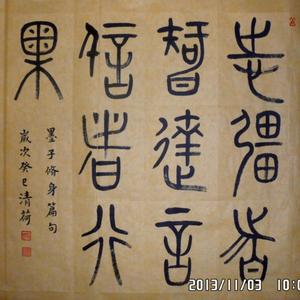 志彊者
智達言
信者行
果
墨子脩身篇句
歲次癸巳清荷
2013/11/03 10:0